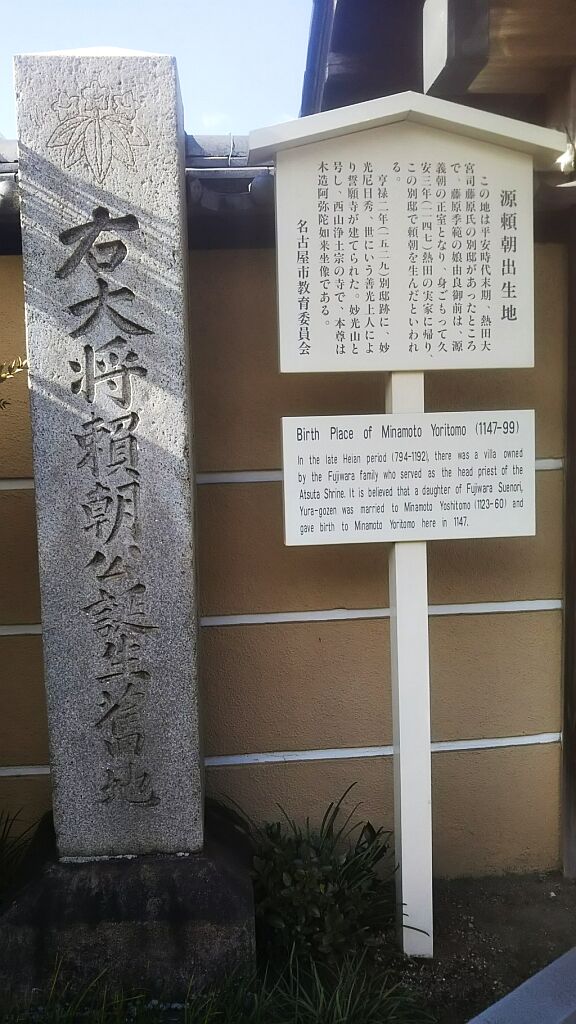 右大将頼朝公誕生舊地
源頼朝出生地
この地は平安時代末期、熱田大
宮司藤原氏の別邸があったところ
で、藤原季範の娘由良御前は、源
義朝の正室となり、身ごもって久
安三年(一一四七)熱田の実家に帰り、
この別邸で頼朝を生んだといわれ
る。
亨禄二年(一五二九)別邸跡に、妙
光尼日秀、世にいう善光上人によ
り誓願寺が建てられた。妙光山と
号し、西山浄土宗の寺で、本尊は
木造阿弥陀如来坐像である。
名古屋市教育委員会
Birth Place of Minamoto Yoritomo (1147-99)
In the late Heian period (794-1192), there was a villa owned
by the Fujiwara family who served as the head priest of the
Atsuta Shrine. It is believed that a daughter of Fujiwara Suenori,
Yura-gozen was married to Minamoto Yoshitomo (1123-60) and
gave birth to Minamoto Yoritomo here in 1147.